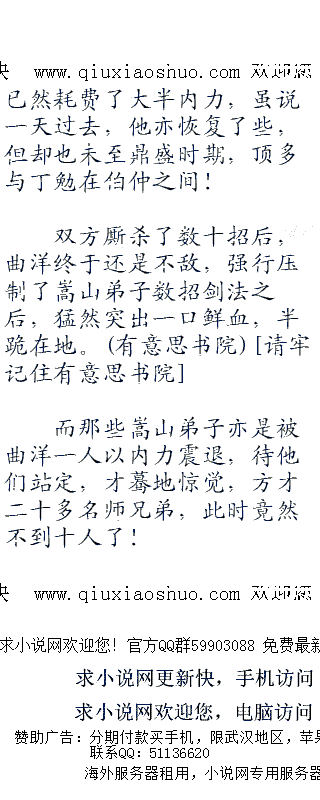 www.qiuxiaoshuo.com 欢迎您
已然耗费了大半内力，虽说
一天过去，他亦恢复了些，
但却也未至鼎盛时期，顶多
与丁勉在伯仲之间！
双方厮杀了数十招后，
曲洋终于还是不敌，强行压
制了嵩山弟子数招剑法之
后，猛然突出一口鲜血，半
跪在地。(有意思书院)[请牢
记住有意思书院]
而那些嵩山弟子亦是被
曲洋一人以内力震退，待他
们站定，才蓦地惊觉，方才
二十多名师兄弟，此时竟然
不到十人了！
www.qiuxiaoshuo.com 欢迎您
求小说网欢迎您！官方QQ群59903088 免费最新
求小说网更新快，手机访问
求小说网欢迎您，电脑访问
赞助广告：分期付款买手机，限武汉地区，苹果
联系QQ：51136620
海外服务器租用，小说网专用服务器